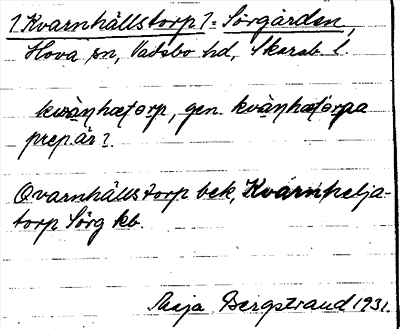 1 Kvarnhällstorp l = Sörgården,
Hova sn, Vadsbo hd, Skarab. l.
kwànhæʈorp, gen. kvànhæʈörpa
prep är ?
Qvarnhällstorp bek, Kvarnhelja-
torp Sörg kb.
Maja Bergstrand 1931.